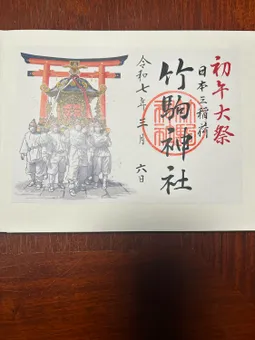 初午大祭
日本三稲荷
竹駒神社
令和七年三月六日